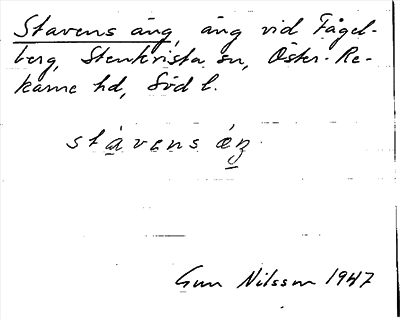 Stavens äng, äng vid Fågel-
berg, Stenkvista sn, Öster-Re-
karne hd, Södl.
stavens äŋ
Gun Nilsson 1947